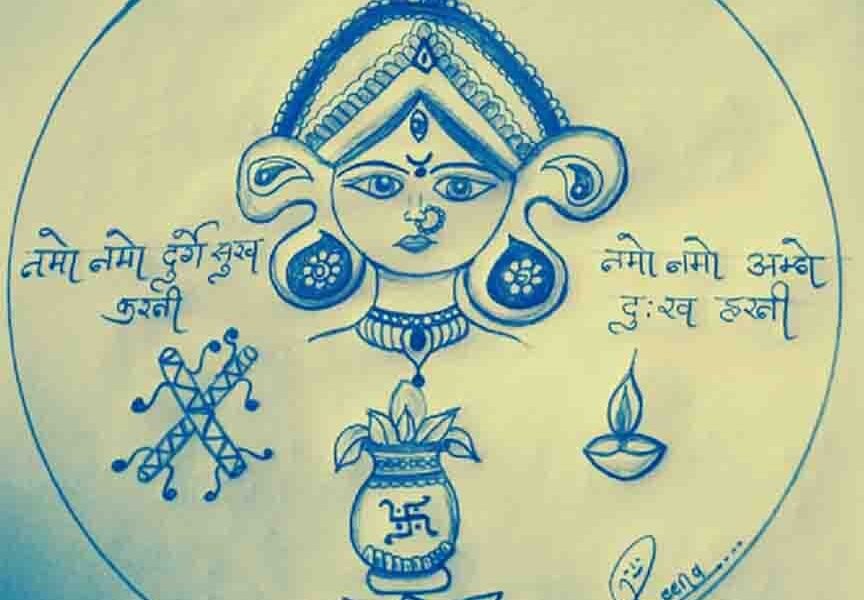 नमो नमो दुर्गे सुख
करनी
नमो नमो अम्बे
दुःख हरनी